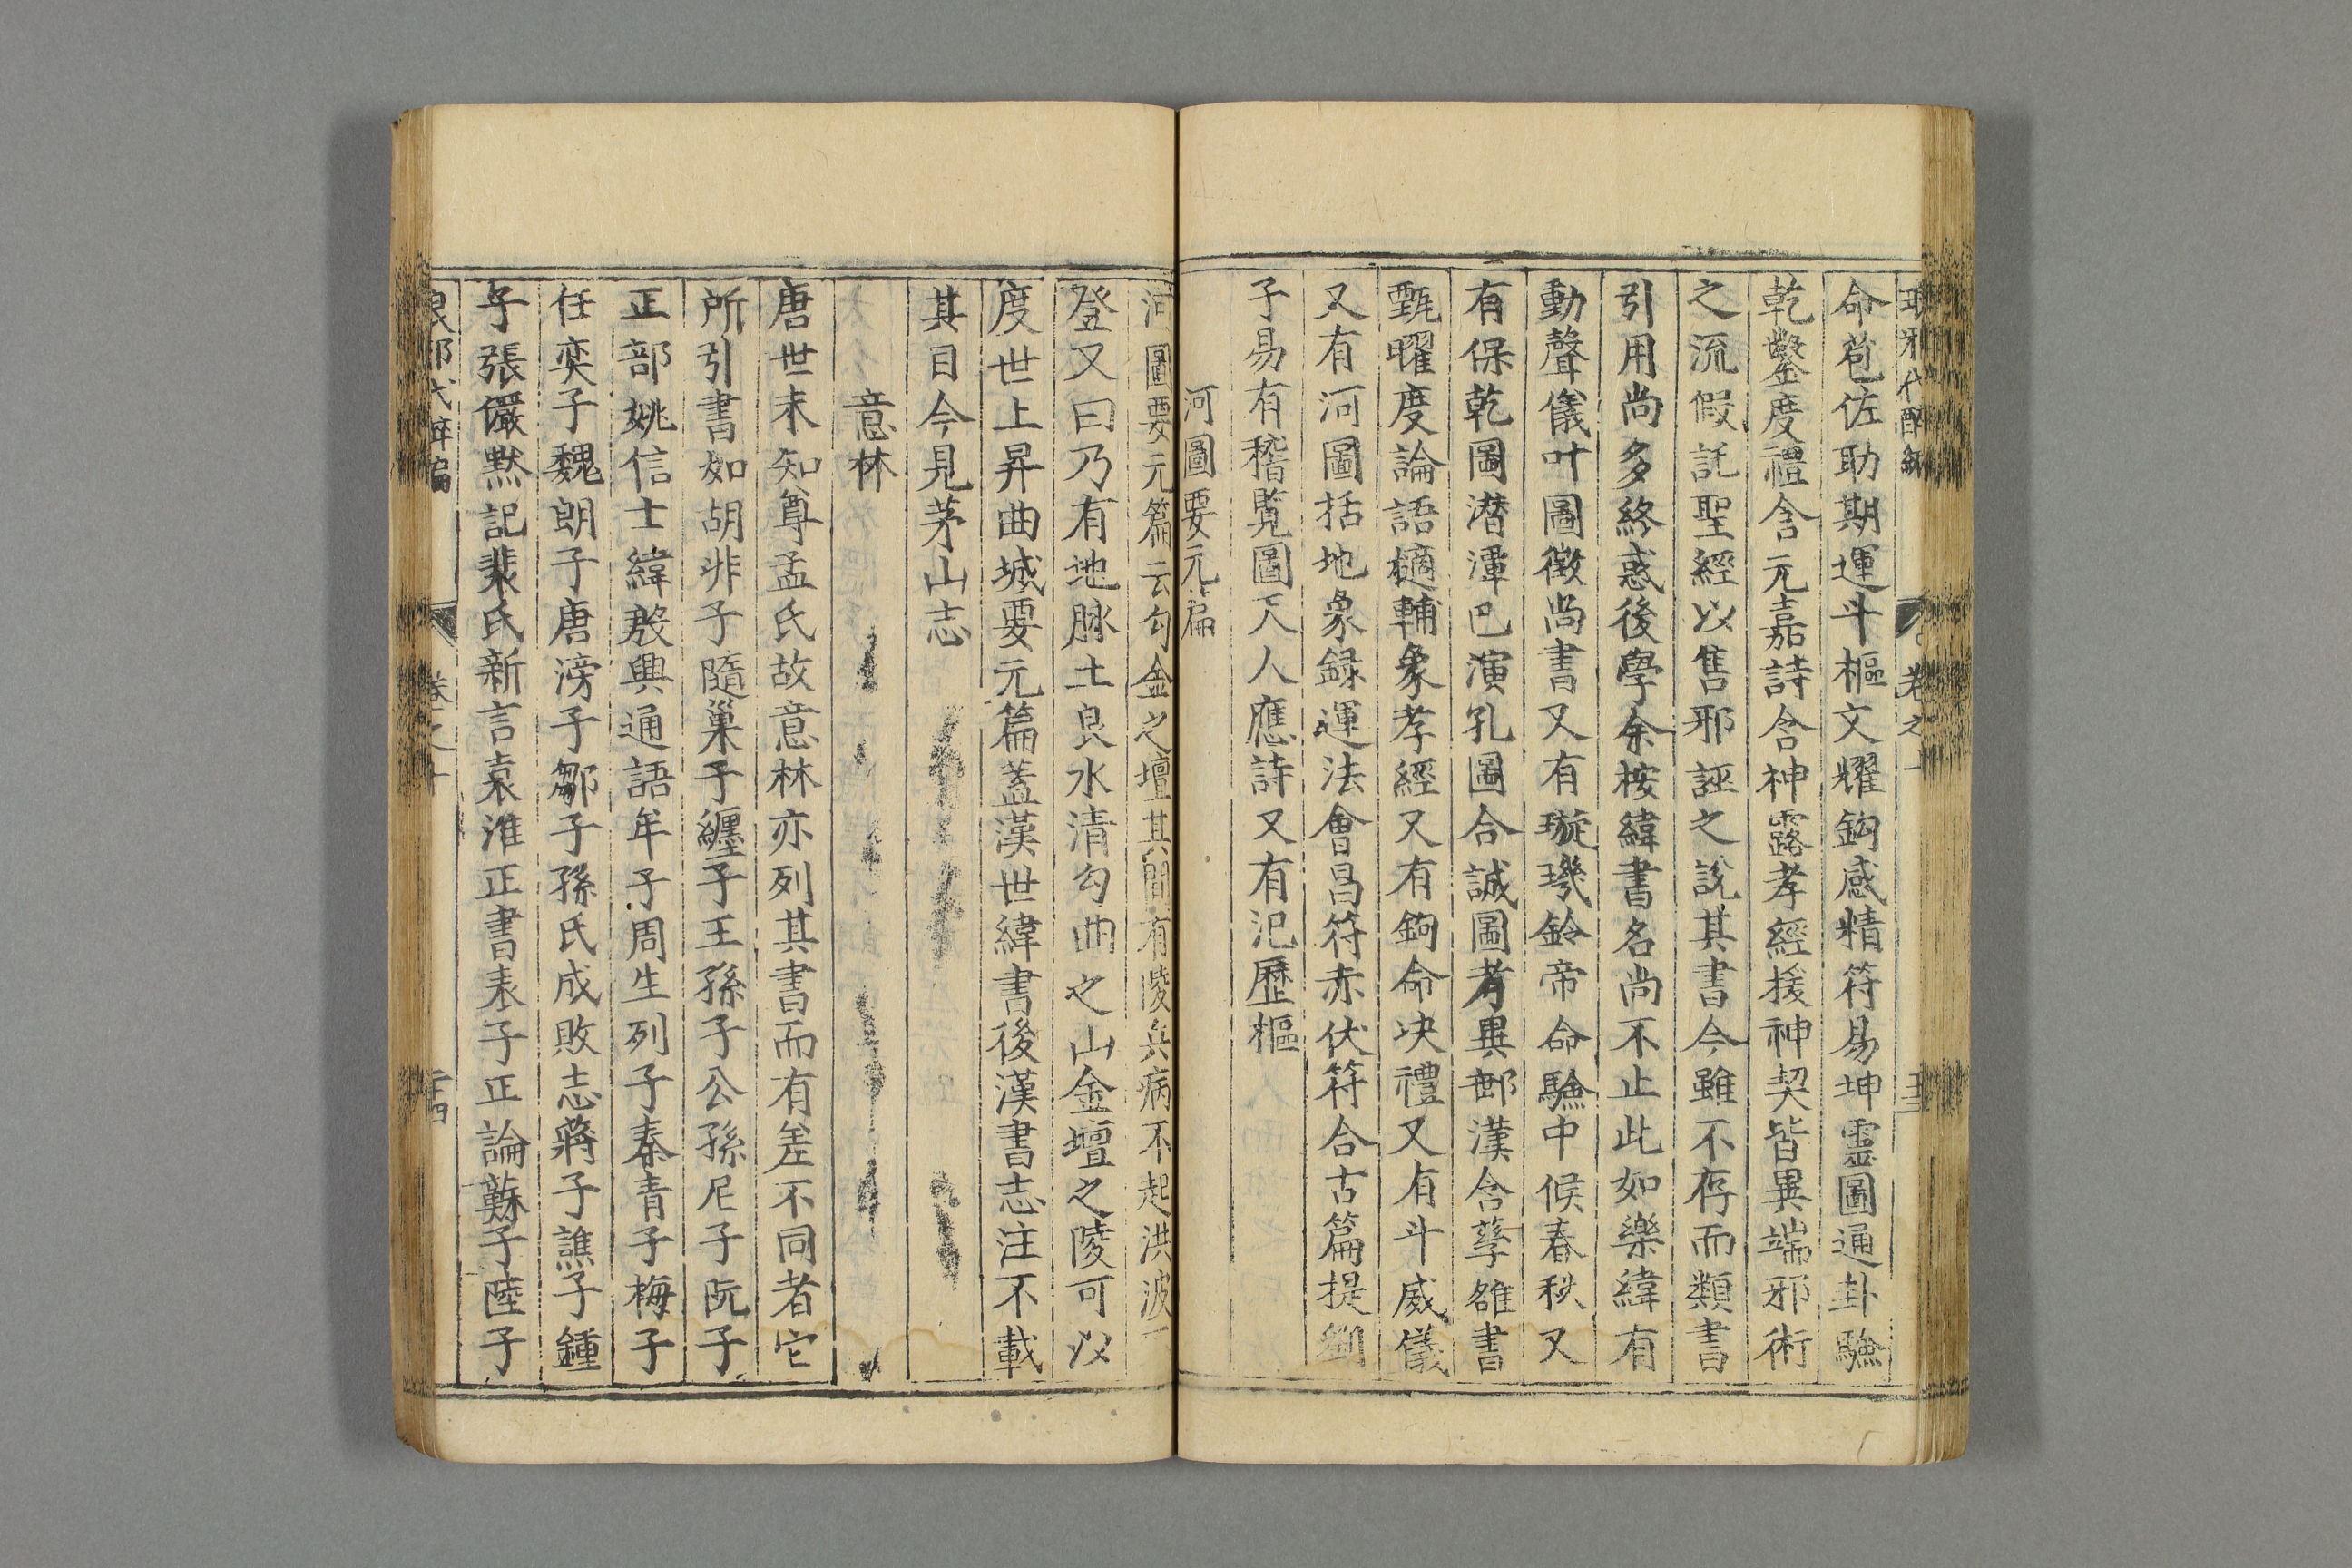 命苞佐助期運斗樞文耀鈎感精符易坤靈圖通卦驗
乾鑿度禮含元嘉詩含神露孝經援神契皆異端邪術
之流假託聖經以售邪誣之說其書今雖不存而類書
引用尚多終惑後學余桉緯書名尚不止此如樂緯有
動聲儀叶圖徵尚書又有璇璣鈴帝命驗中候春秋又
有保乾圖潜潭巴演孔圖合誠圖考異郵漢含孳雒書
甄曜度論語摘輔象孝經又有鉤命決禮又有斗威儀
又有河圖括地象録運法會昌符赤伏符合古篇提劉
子易有稽覧圖天人應詩又有汜歷樞
河圖要元篇
河圖要元篇云勾金之壇其間有陵兵病不起洪波不
登又曰乃有地脉土良水清勾曲之山金壇之陵可以
度世上昇曲城要元篇蓋漢世緯書後漢書志注不載
其目今見茅山志
意林
唐世未知尊孟氏故意林亦列其書而有差不同者它
所引書如胡非子隨巢子纏子王孫子公孫尼子阮子
正部姚信士緯殷興通語牟子周生列子秦青子梅子
任奕子魏朗子唐滂子鄒子孫氏成敗志蔣子譙子鍾
子張儼默記裴氏新言袁淮正書袁子正論蘇子陸子
卷之十
二十四